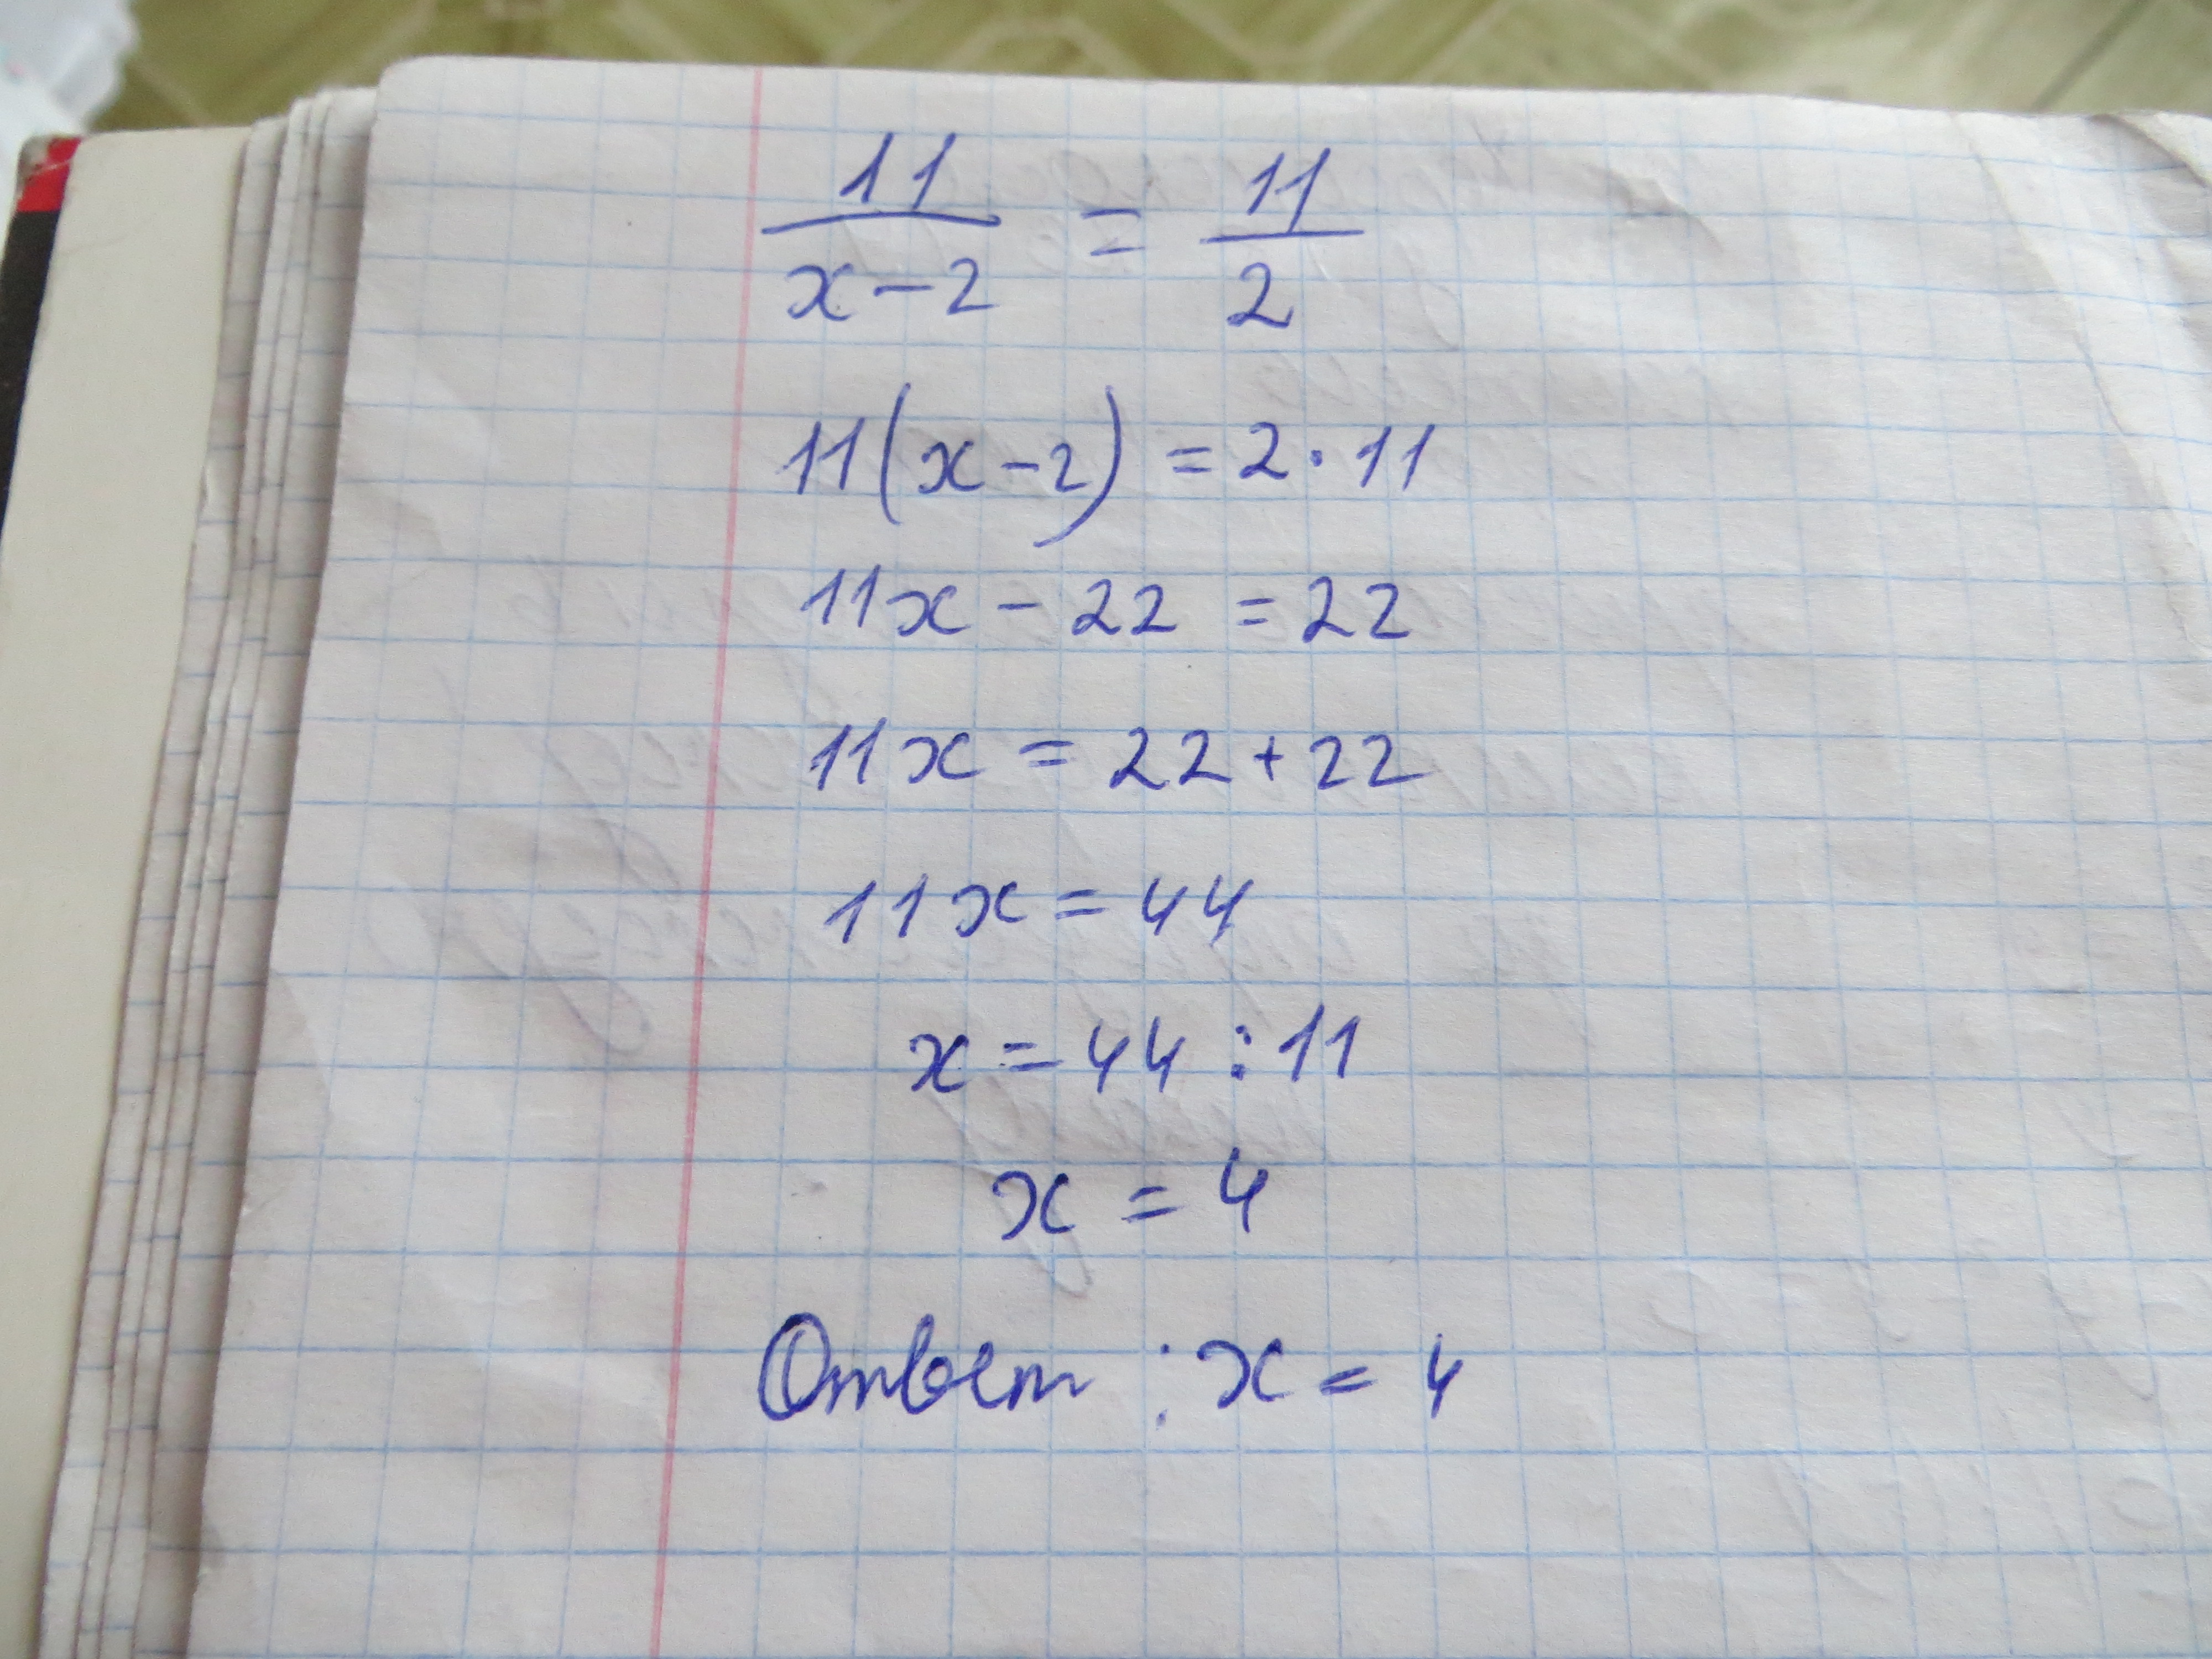 11/(x-2) = 11/2
11(x-2) = 2·11
11x - 22 = 22
11x = 22+22
11x = 44
x = 44 : 11
x = 4
Ответ : x = 4